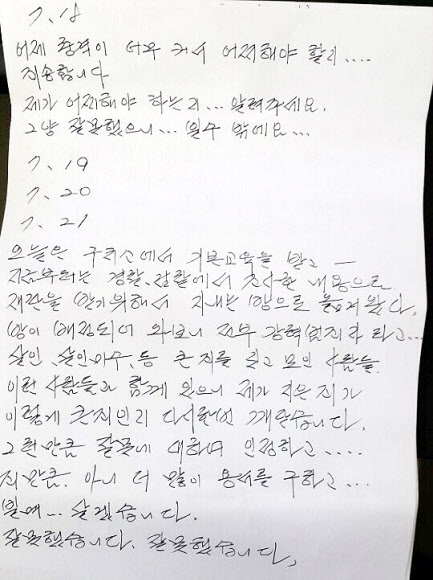 7. 18
어제 충격이 너무 커서 어찌해야 할지....
죄송합니다
제가 어찌해야 하는지... 알려주세요.
그냥 잘못했으니... 빌수 밖에요...
7. 19
7. 20
7. 21
오늘은 구치소에서 기본교육을 받고 —
지금부터는 경찰, 검찰에서 조사한 내용으로
재판을 받기위해서 지내는 방으로 옮겨 왔다.
방이 배정되어 와보니 전부 강력범죄자 라고...
살인, 살인미수, 등 큰 죄를 짓고 모인 사람들.
이런 사람들과 함께 있으니 제가 지은 죄가
이렇게 큰죄인지 다시한번 깨닫습니다.
그런만큼 잘못에 대하여 인정하고 .....
죄만큼. 아니 더 많이 용서를 구하고 ...
빌며... 살겠습니다.
잘못했습니다. 잘못했습니다,